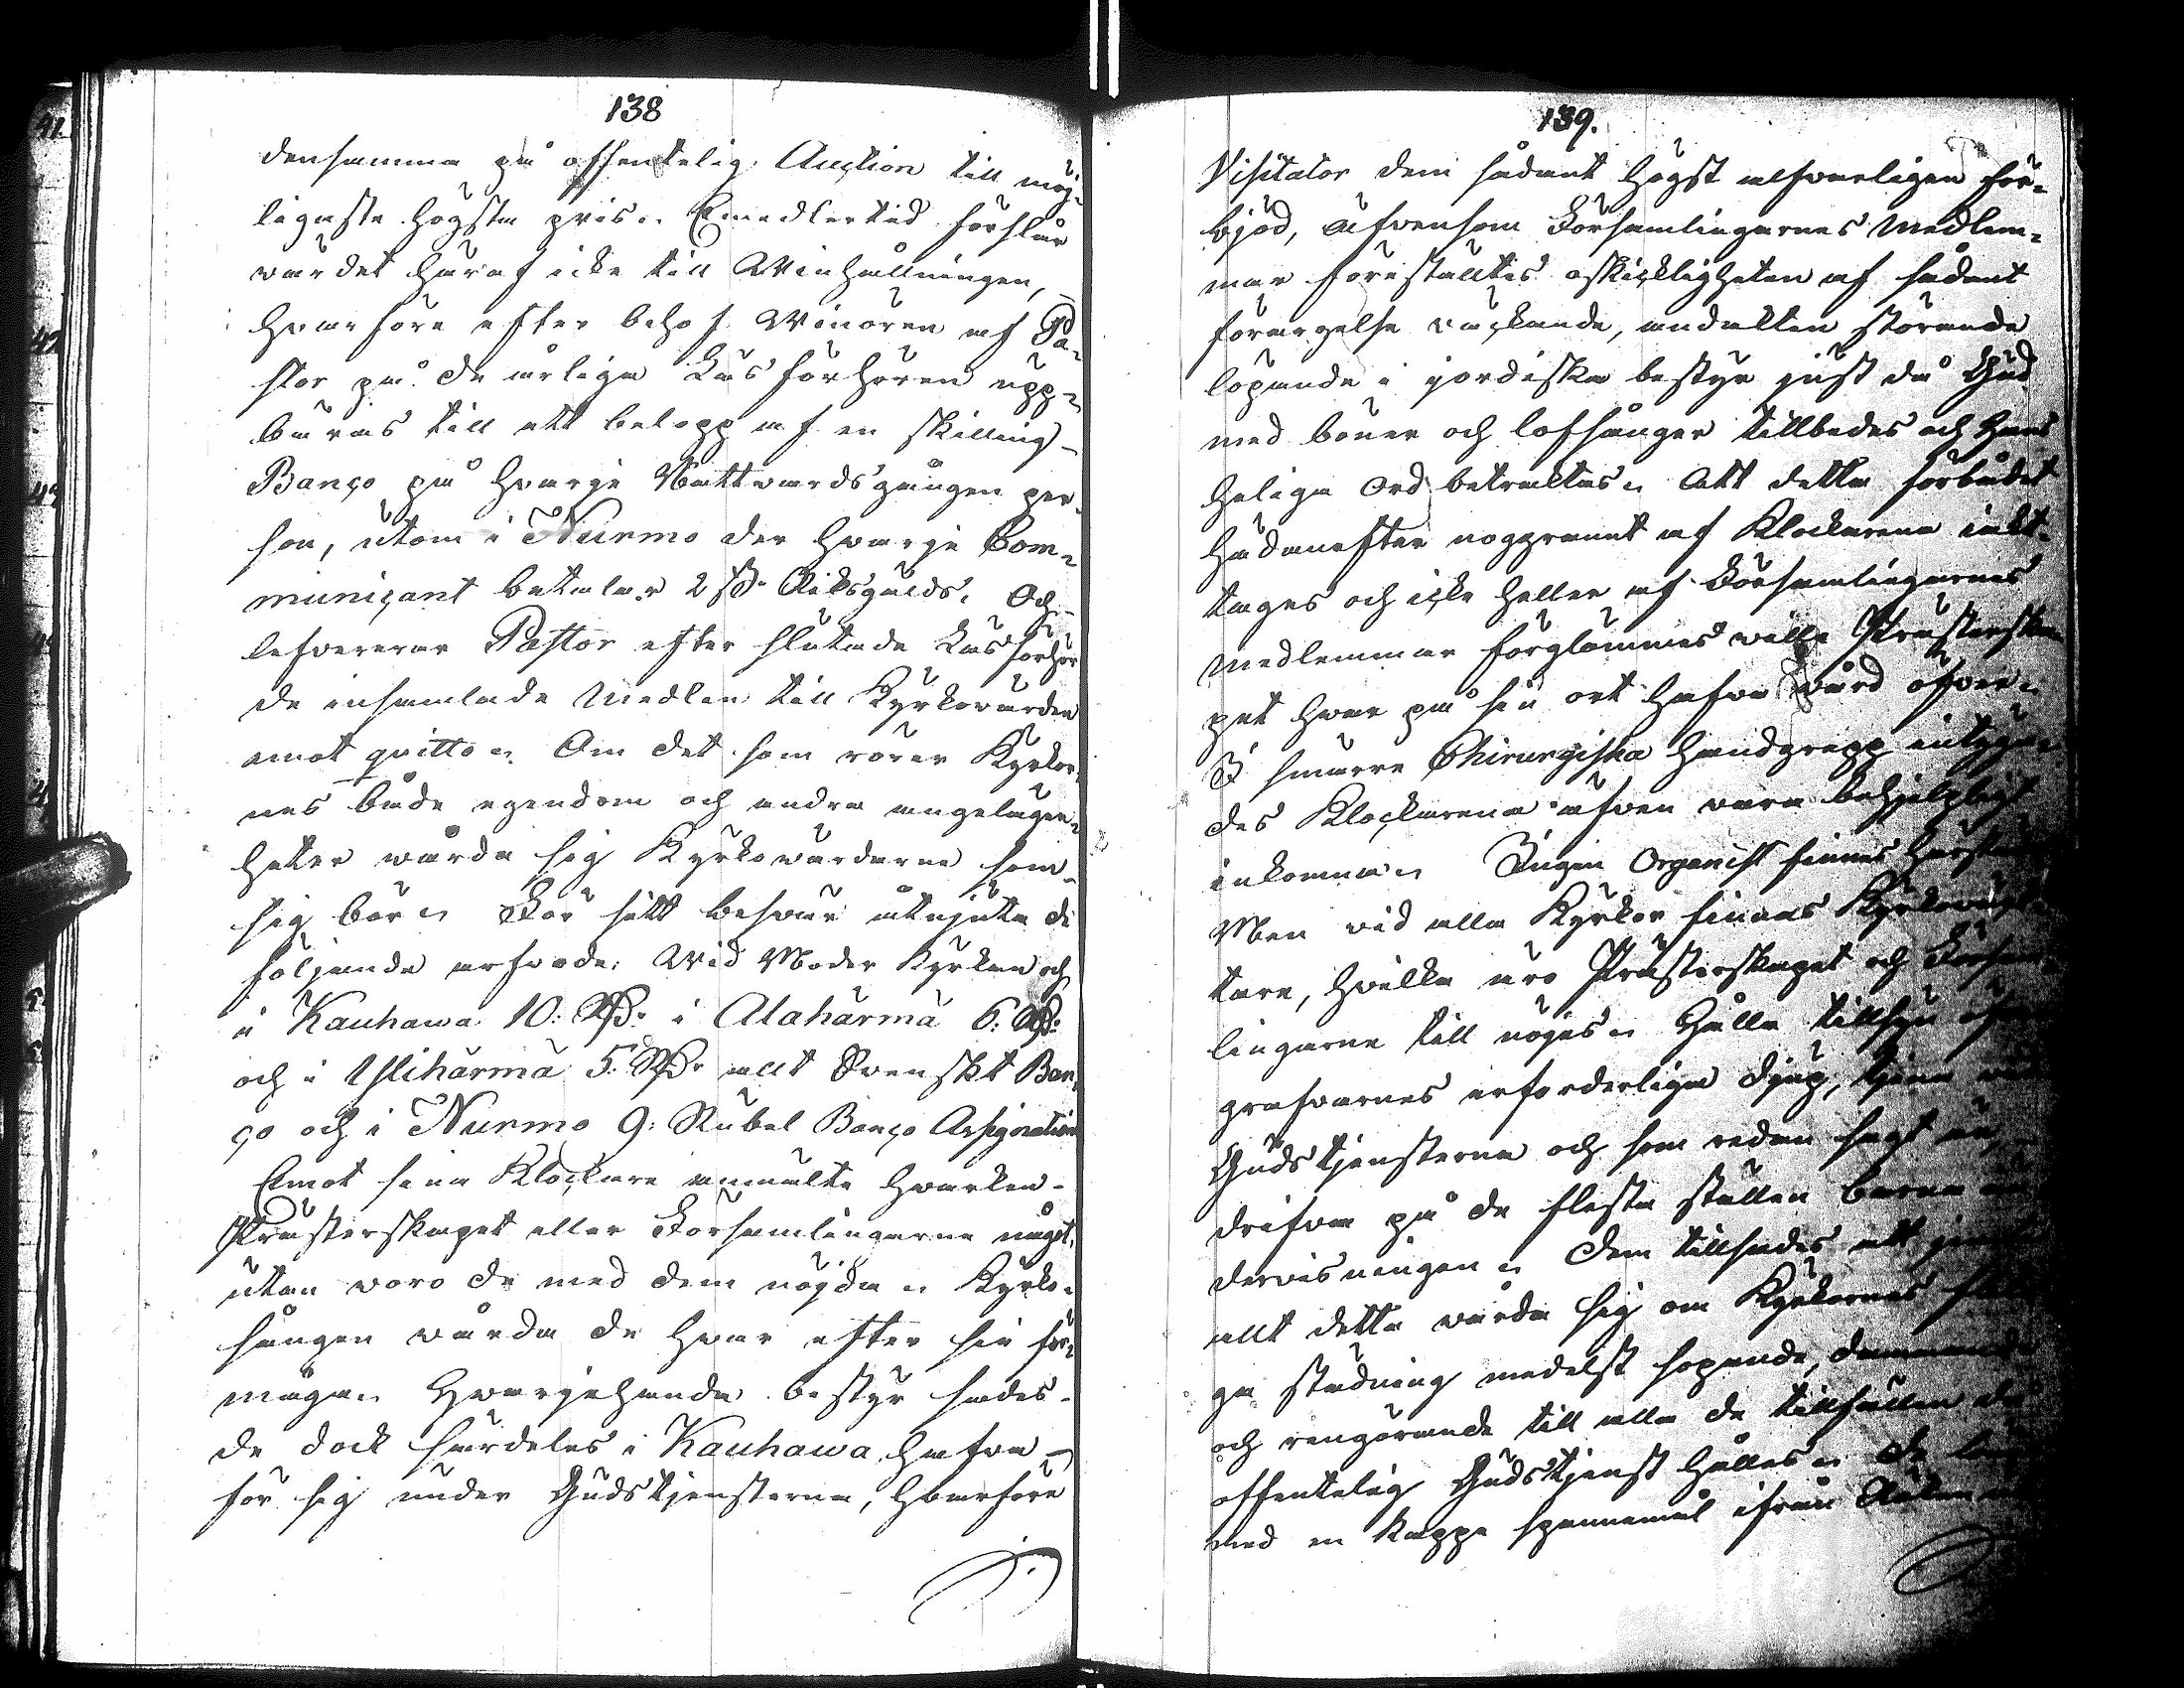 138
densamma på offentelig Auction till möj-
ligaste högsta pris. Emedlertid förslår
wärdet häraf icke till Winhållningen,
hvarföre efter behof Winören af Pa-
stor på de årliga Läsförhören upp-
bäras till ett belopp af en skilling
Banco på hvarje Nattvardsgången per-
son, utom i Nurmo der hvarje Com-
municant betalar 2 sk. Riksgälds. Och
lefvererar Pastor efter slutade Läsförhör
de insamlade Medlen till Kyrkovärden
emot qvitto. Om det som rörer Kyrkor-
nes både egendom och andra angelägen-
heter wårda sig Kyrkowärdarne som
sig bör. För sitt besvär åtnjuta de
följande arfvode: Wid Moder Kyrkan och
i Kauhawa 10: Rd. i Alahärmä 6: Rd.
och i Ylihärmä 5. Rd. allt Svenskt Ban-
co och i Nurmo 9: Rubel Banco Assignation
Emot sina Klockare anmälte hvarken
Prästerskapet eller Församlingarne något,
utan woro de med dem nöjda. Kyrko-
sången wårda de hvar efter sin för-
måga. Hvarjehanda bestyr sades
de dock särdeles i Kauhawa hafva
för sig under Gudstjensterna, hvarföre
139.
Visitator dem sådant högst alfvarligen för-
bjöd, äfvensom Församlingarnes Medlem-
mar föreställtes oskickligheten af sådant
förargelse väckande, andakten störande
löpande i jordiska bestyr just då Gud
med böner och lofsånger tillbedes och Hans
heliga Ord betraktas. Att detta förbudet
hädanefter noggrannt af Klockarena iakt-
tages och icke heller af Församlingarnes
medlemmar förglömmes wille Prästerska-
pet hvar på sin ort hafva wård öfver.
I smärre Chirurgiska handgrepp intyga-
des Klockarena äfven vara behjelpligt
inkomna. Ingen Organist finnes härstädes
Men vid alla Kyrkor finnas Kyrkowäk-
tare, hvilka äro Prästerskapet och Försam-
lingarne till nöjes. Hålla tillsyn öfver
grafvarnes erforderliga djup, tjena vid
Gudstjensterna och som redan sagt är,
drifva på de flesta ställen barna un-
dervisningen. Dem tillsades att jemte
allt detta wårda sig om Kyrkornas
ga städning medelst sopande, dammande
och rengörande till alla de tillfällen då
offentelig Gudstjenst hålles. De
med en kappe spannemål ifrån Röken